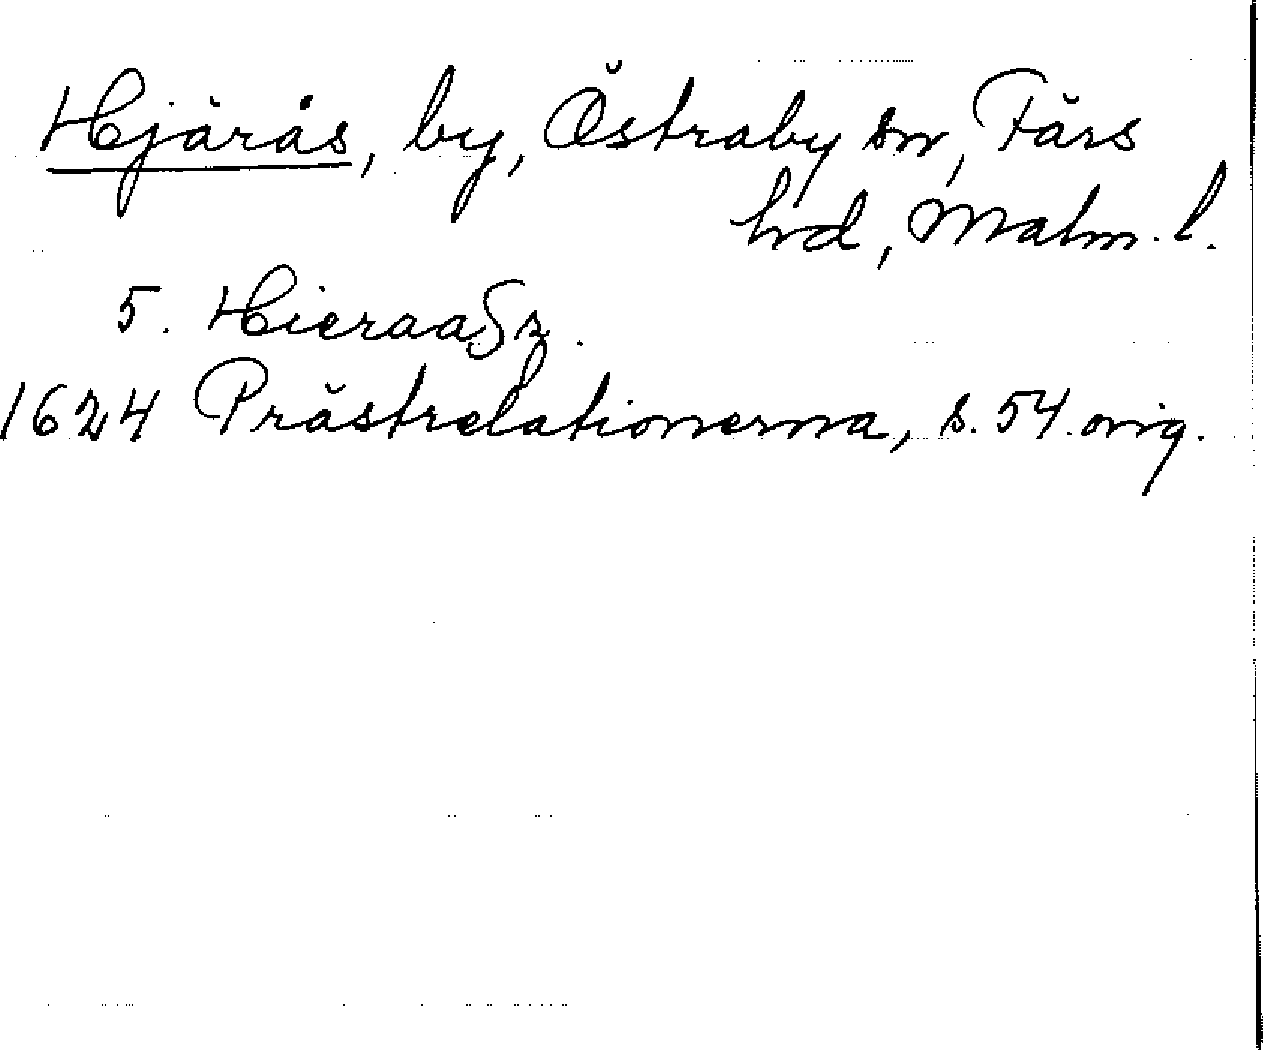 Hjärås, by, Östraby sn, Färs
hrd, Malm. l.
5. Hieraas
1624 Prästrelationerna, s. 54. orig.